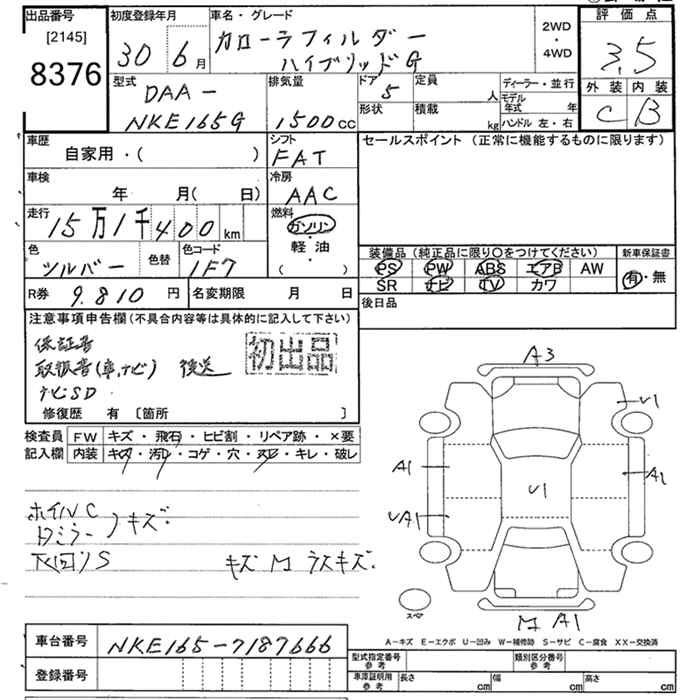 出品番号
[2145]
8376
初度登録年月
30 6月
車名・グレード
カローラフィルダー
ハイブリッドG
2WD
・
4WD
評価点
3.5
外装 内装
C B
型式
DAA-
NKE165G
排気量
1500cc
ドア
5
形状
定員
人
積載
kg
ディーラー・並行
モデル年式 年
ハンドル 左・右
車歴
自家用・( )
シフト
FAT
セールスポイント (正常に機能するものに限ります)
車検
年 月( 日)
冷房
AAC
走行
15万1千400km
燃料
ガソリン
・
軽・油
( )
色
シルバー
色替
色コード
1F7
装備品 (純正品に限り○をつけてください)
新車保証書
PS PW ABS エアB AW
SR ナビ TV カワ
有・無
R券 9.810円
名変期限 月 日
後日品
注意事項申告欄(不具合内容等は具体的に記入して下さい)
保証書
取扱書(車,ナビ) 後送
ナビSD
初出品
修復歴 有 〔箇所 〕
検査員
記入欄
FW キズ・飛石・ヒビ割・リペア跡・×要
内装 キズ・汚レ・コゲ・穴・スレ・キレ・破レ
ホイルC
ドアミラー キズ
下回りS
キズ M ラスキズ.
A3
U1
A1
A1
U1
UA1
スペア
M A1
A-キズ E-エクボ U-凹み W-補修跡 S-サビ C-腐食 XX-交換済
車台番号 NKE165-7187666
登録番号
型式指定番号
参考
類別区分番号
参考
車庫証明用
参考
長さ cm
幅 cm
高さ cm